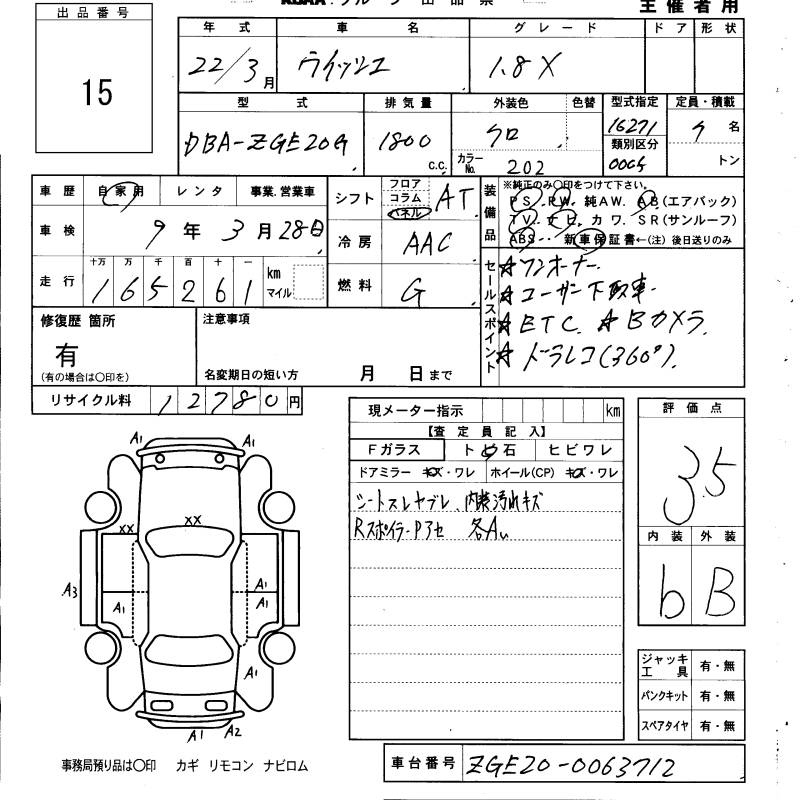 出品番号
15
主催者用
年式 車名 グレード ドア 形状
22/3月 ウイッシュ 1.8X
型式 排気量 外装色 色替 型式指定 定員・積載
DBA-ZGE20G 1800 c.c. クロ 16271 名
類別区分
カラーNo. 202 トン
車歴 自家用 レンタ 事業.営業車
シフト フロア コラム パネル AT
装備品
※純正のみ○印をつけて下さい。
PS. PW. 純AW. AB(エアバック)
TV. ナビ. カワ. SR(サンルーフ)
ABS・・ 新車保証書←(注) 後日送りのみ
車検 9年3月28日
冷房 AAC
走行 十万 万 千 百 十 一
165261 km マイル
燃料 G
セールスポイント
☆ワンオーナー.
☆ユーザー下取車.
☆ETC. ☆Bカメラ.
☆ドラレコ(360°).
修復歴 箇所
有
(有の場合は○印を)
注意事項
名変期日の短い方 月 日まで
リサイクル料 12780円
現メーター指示 km
【査定員記入】
Fガラス トビ石 ヒビワレ
ドアミラー キズ・ワレ ホイール(CP) キズ・ワレ
シートスレヤブレ、内装汚れキズ
Rスポイラー P3セ 各A
評価点
3.5
内装 外装
b B
A1 A1
XX XX
A3 A1 A1 A1
A1
A1 A2
ジャッキ 工具 有・無
パンクキット 有・無
スペアタイヤ 有・無
事務局預り品は○印 カギ リモコン ナビロム
車台番号 ZGE20-0063712